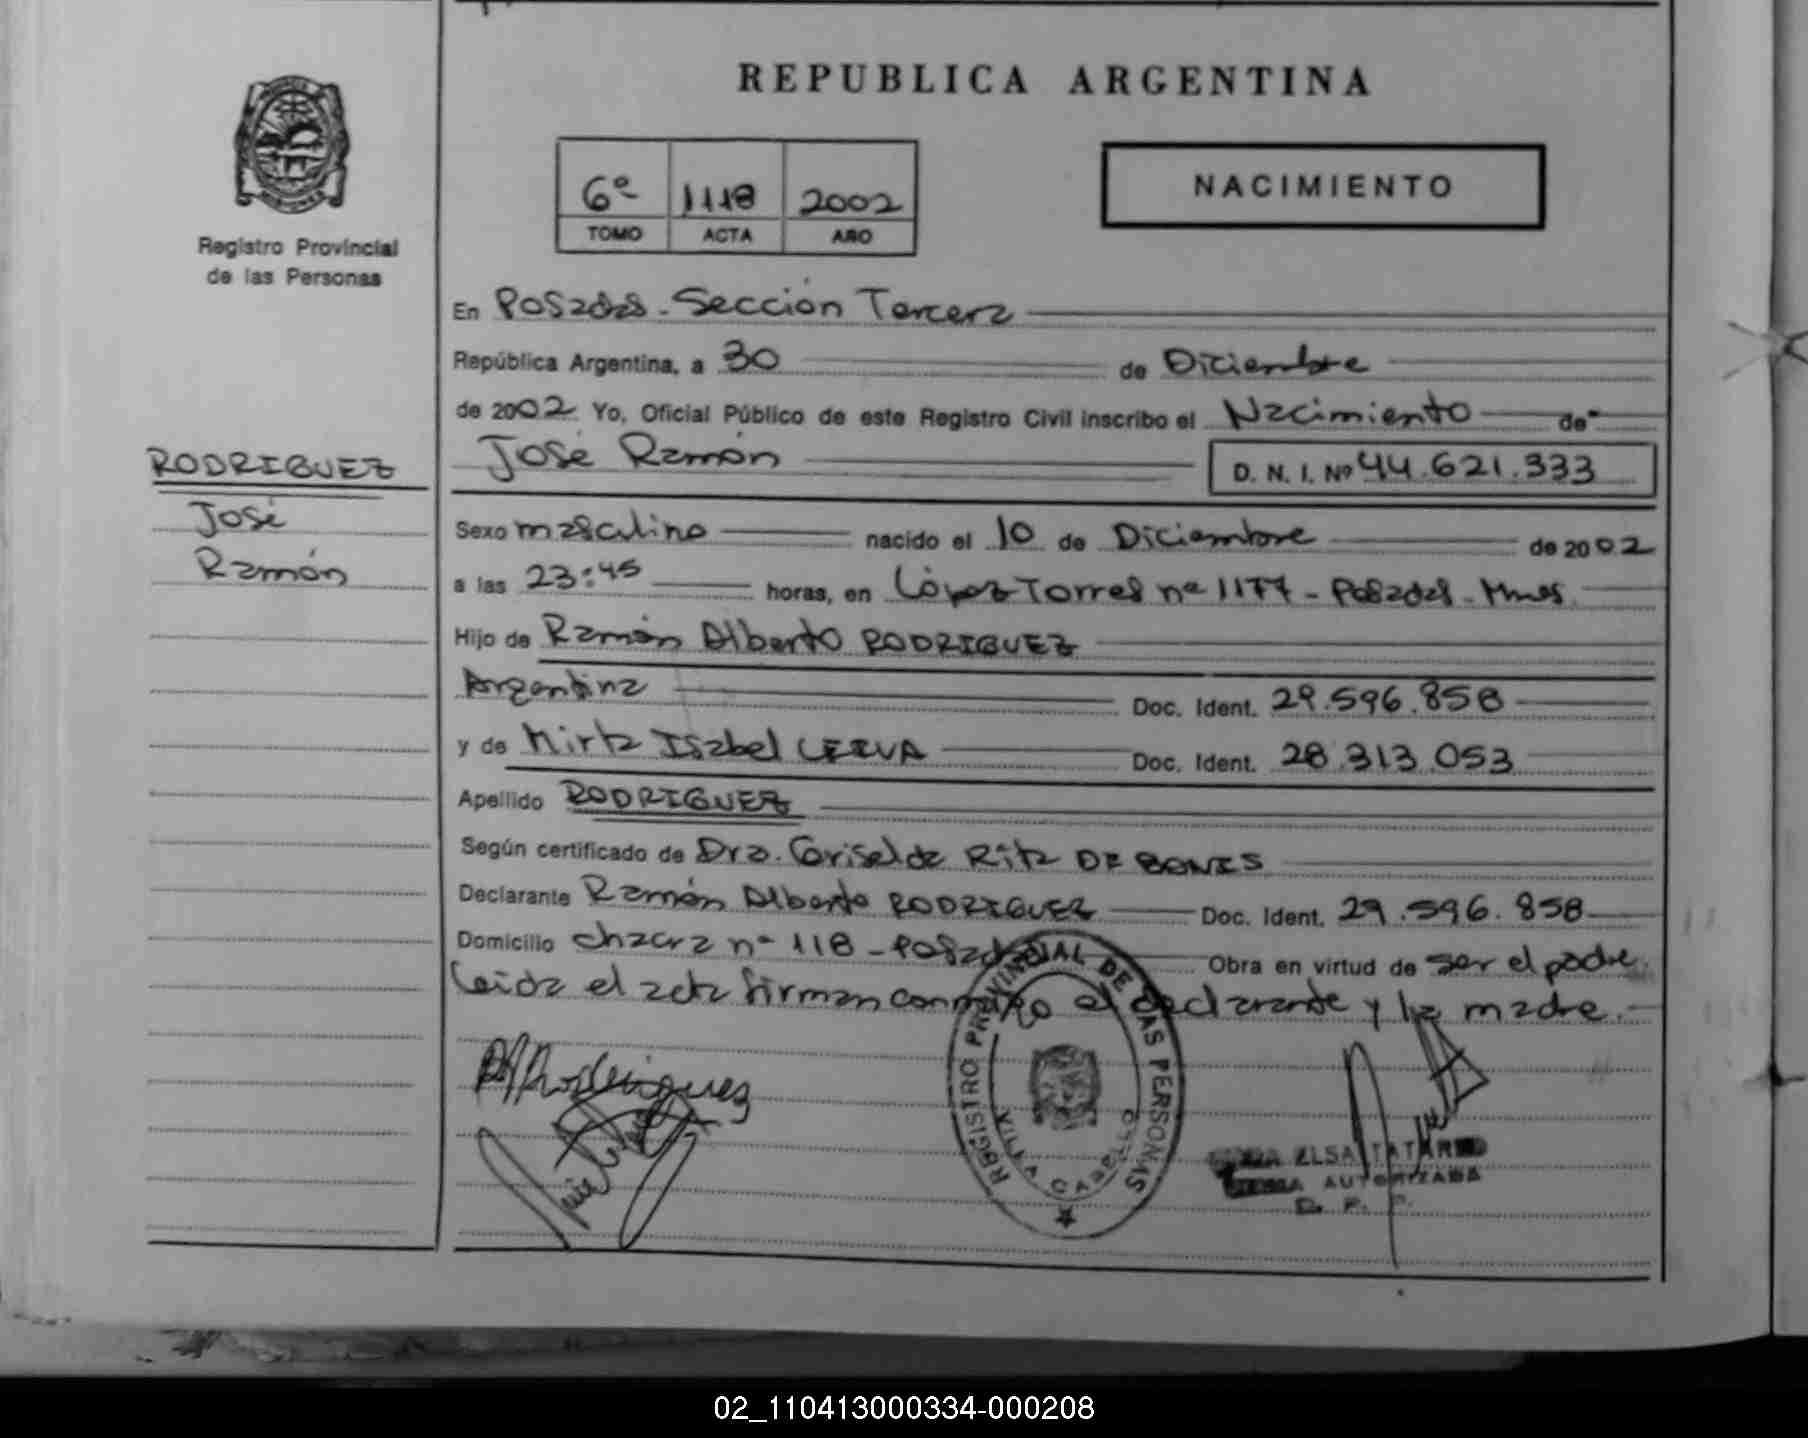 REPUBLICA ARGENTINA
Registro Provincial
de las Personas
6º 1118 2002
TOMO ACTA AÑO
NACIMIENTO
En Posadas - Sección Tercera
República Argentina, a 30 de Diciembre
de 2002 Yo, Oficial Público de este Registro Civil inscribo el Nacimiento de
José Ramón D. N. I. Nº 44.621.333
RODRIGUEZ
José
Ramón
Sexo masculino nacido el 10 de Diciembre de 2002
a las 23:45 horas, en López Torres nº 1177 - Posadas - Mnes.
Hijo de Ramón Alberto RODRIGUEZ
Argentina Doc. Ident. 29.596.858
y de Mirta Isabel LEIVA Doc. Ident. 28.313.053
Apellido RODRIGUEZ
Según certificado de Dra. Griselda Rita DE BONIS
Declarante Ramón Alberto RODRIGUEZ Doc. Ident. 29.596.858
Domicilio chacra nº 118 - Posadas Obra en virtud de ser el padre.
Leida el acta firman conmigo el declarante y la madre.
REGISTRO PROVINCIAL DE LAS PERSONAS
VILLA CABELLO
ELSA
FIRMA AUTORIZADA
02_110413000334-000208